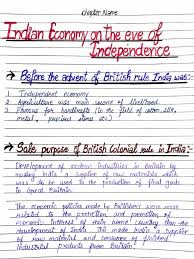 Chapter Name
Indian Economy on the eve of
Independence
→ Before the advent of British rule India was:-
1. Independent economy
2. Agriculture was main source of livelihood.
3. Famous for handicrafts (in the field of cotton silk,
metal, precious stones etc)
→ Sole purpose of British Colonial rule in India
Development of modern industries in Britain by
making India a supplier of raw materials which
was to be used to the production of final goods
in Great Britain.
The economic policies made by Britishers were more
related to the protection and promotion of
economic interest of their home country than the
development of India. This made India a supplier
of raw material and consumer of finished
industrial products from Britain.